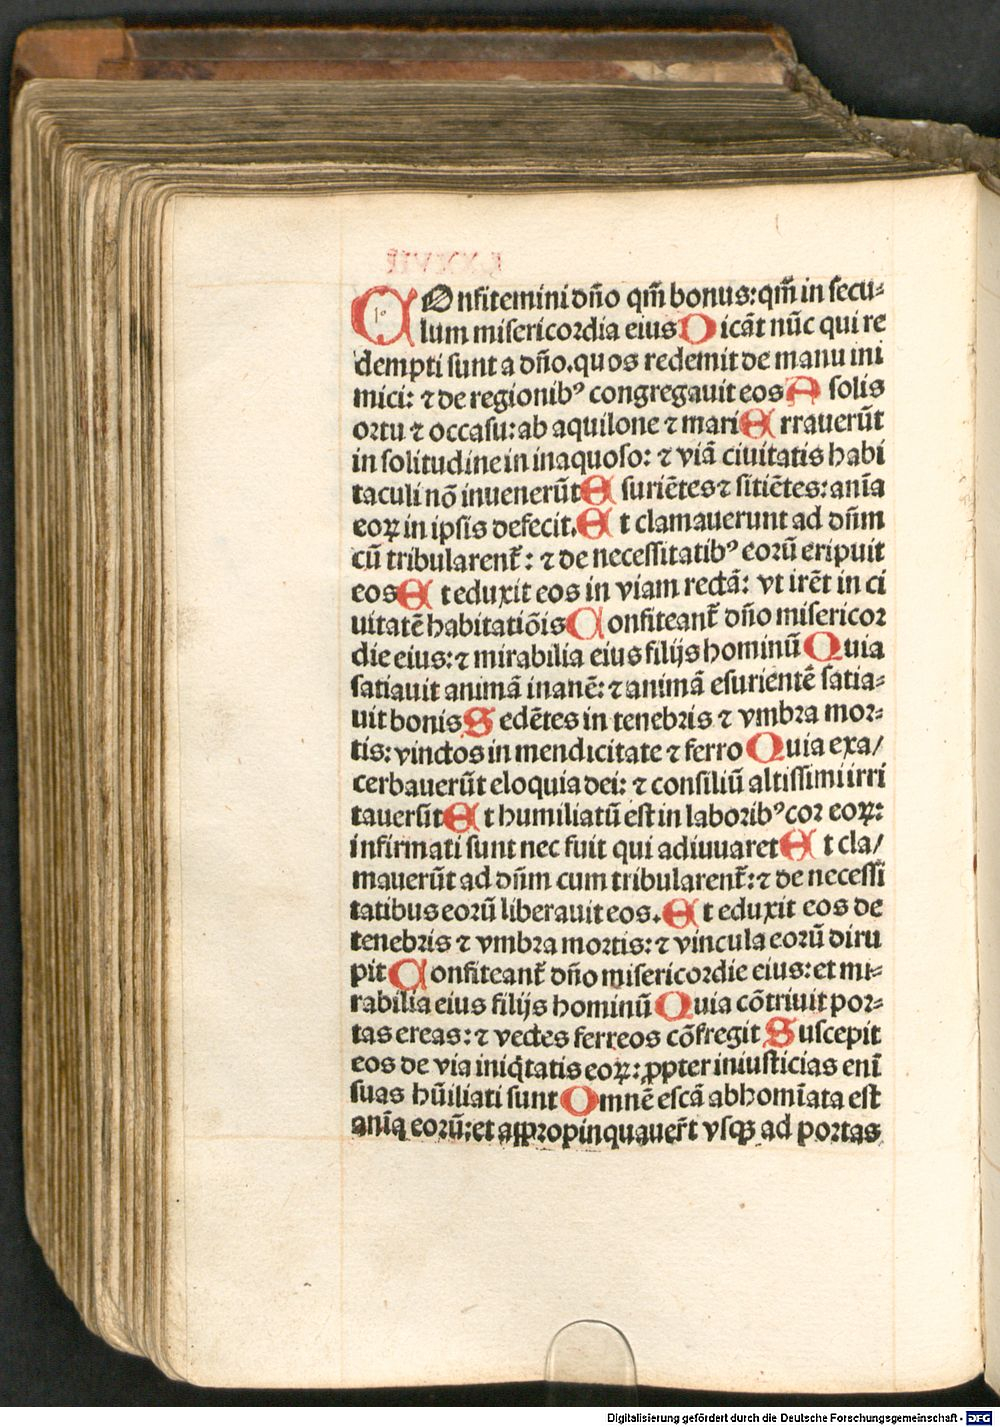 COnfitemini dño qm̃ bonus: qm̃ in secu⸗
lum misericordia eius Dicãt nũc qui re
dempti sunt a dño. quos redemit de manu ini
mici: ⁊ de regionibꝰ congregauit eos A solis
ortu ⁊ occasu: ab aquilone ⁊ mari Errauerũt
in solitudine in inaquoso: ⁊ viã ciuitatis habi
taculi nõ inuenerũt Esuriẽtes ⁊ sitiẽtes: anĩa
eoꝝ in ipsis defecit. Et clamauerunt ad dñm
cũ tribularent̃: ⁊ de necessitatibꝰ eorũ eripuit
eos Et eduxit eos in viam rectã: vt irẽt in ci
uitatẽ habitatiõis Confiteant̃ dño misericor
die eius: ⁊ mirabilia eius filijs hominũ Quia
satiauit animã inanẽ: ⁊ animã esurientẽ satia⸗
uit bonis Sedẽtes in tenebris ⁊ vmbra mor⸗
tis: vinctos in mendicitate ⁊ ferro Quia exa/
cerbauerũt eloquia dei: ⁊ consiliũ altissimi irri
tauerũt Et humiliatũ est in laboribꝰ cor eoꝝ:
infirmati sunt nec fuit qui adiuuaret Et cla/
mauerũt ad dñm cum tribularent̃: ⁊ de necessi
tatibus eorũ liberauit eos. Et eduxit eos de
tenebris ⁊ vmbra mortis: ⁊ vincula eorũ diru
pit Confiteant̃ dño misericordie eius: et mi⸗
rabilia eius filijs hominũ Quia cõtriuit por⸗
tas ereas: ⁊ vectes ferreos cõfregit Suscepit
eos de via iniq̃tatis eoꝝ: ꝓpter iniusticias enĩ
suas hũiliati sunt Omnẽ escã abhomĩata est
anĩa eorũ: et appropinquauer̃t vsqꝫ ad portas
Digitalisierung gefördert durch die Deutsche Forschungsgemeinschaft - DFG